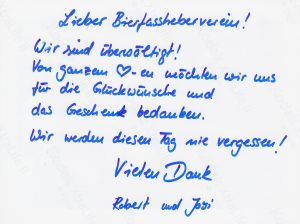 Lieber Bierfassheberverein!
Wir sind überwältigt!
Von ganzem ♡-en möchten wir uns
für die Glückwünsche und
das Geschenk bedanken.
Wir werden diesen Tag nie vergessen!
Vielen Dank
Robert und Josi